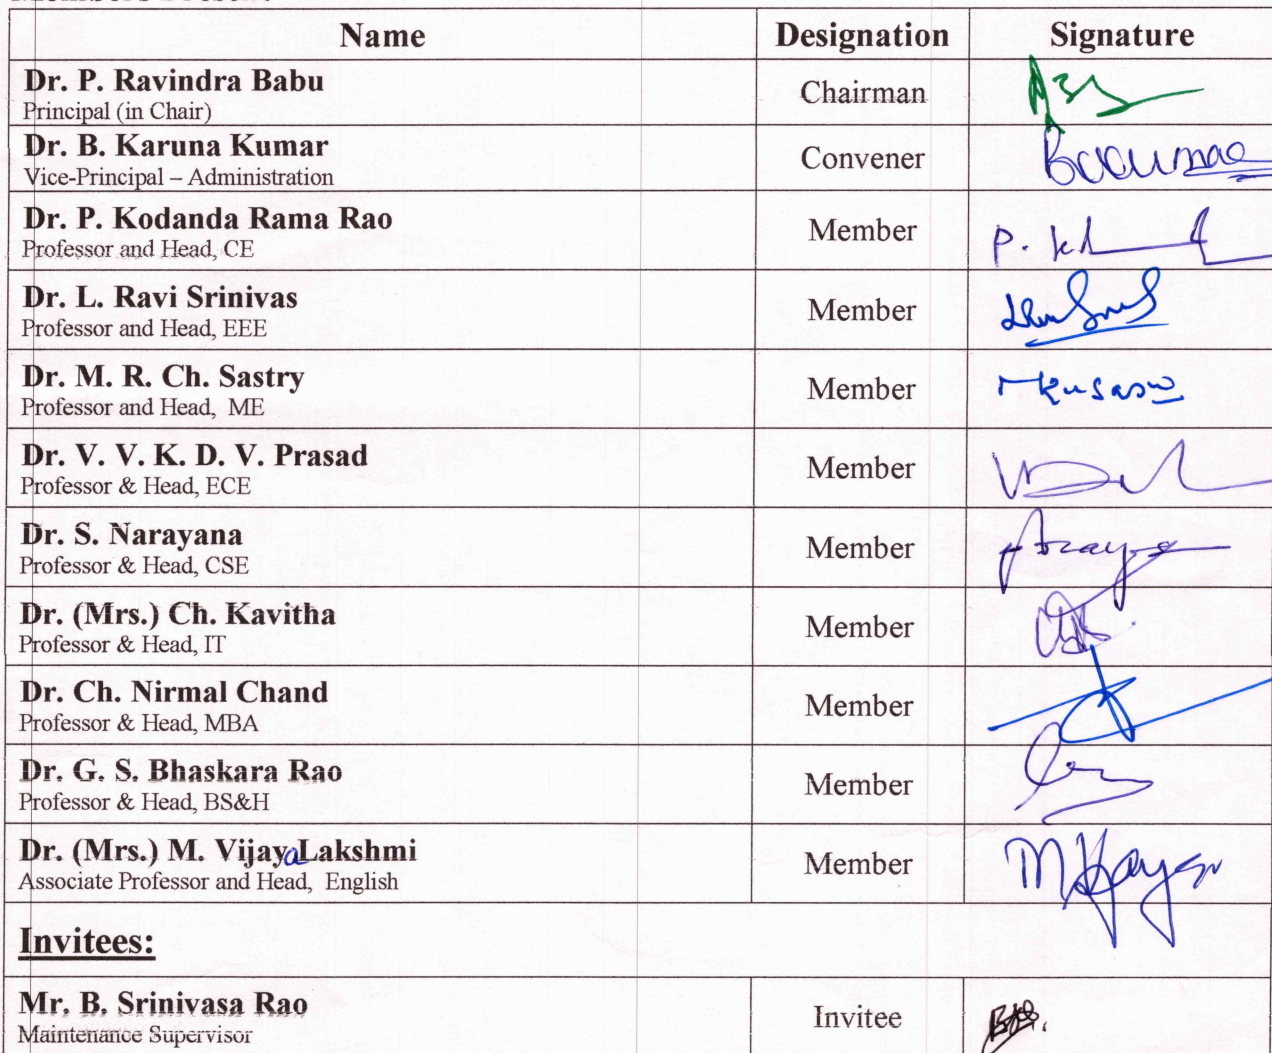 Name Designation Signature
Dr. P. Ravindra Babu
Principal (in Chair)
Chairman
Dr. B. Karuna Kumar
Vice-Principal – Administration
Convener
Dr. P. Kodanda Rama Rao
Professor and Head, CE
Member
P.
Dr. L. Ravi Srinivas
Professor and Head, EEE
Member
Dr. M. R. Ch. Sastry
Professor and Head, ME
Member
Dr. V. V. K. D. V. Prasad
Professor & Head, ECE
Member
Dr. S. Narayana
Professor & Head, CSE
Member
Dr. (Mrs.) Ch. Kavitha
Professor & Head, IT
Member
Dr. Ch. Nirmal Chand
Professor & Head, MBA
Member
Dr. G. S. Bhaskara Rao
Professor & Head, BS&H
Member
Dr. (Mrs.) M. Vijaya Lakshmi
Associate Professor and Head, English
Member
Invitees:
Mr. B. Srinivasa Rao
Maintenance Supervisor
Invitee